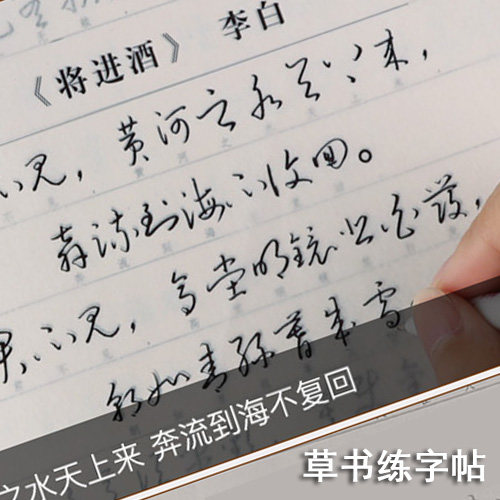 《将进酒》 李白
不见，黄河之水天上来，
奔流到海不复回。
君不见，高堂明镜悲白发，
朝如青丝暮成雪
之水天上来 奔流到海不复回
草书练字帖